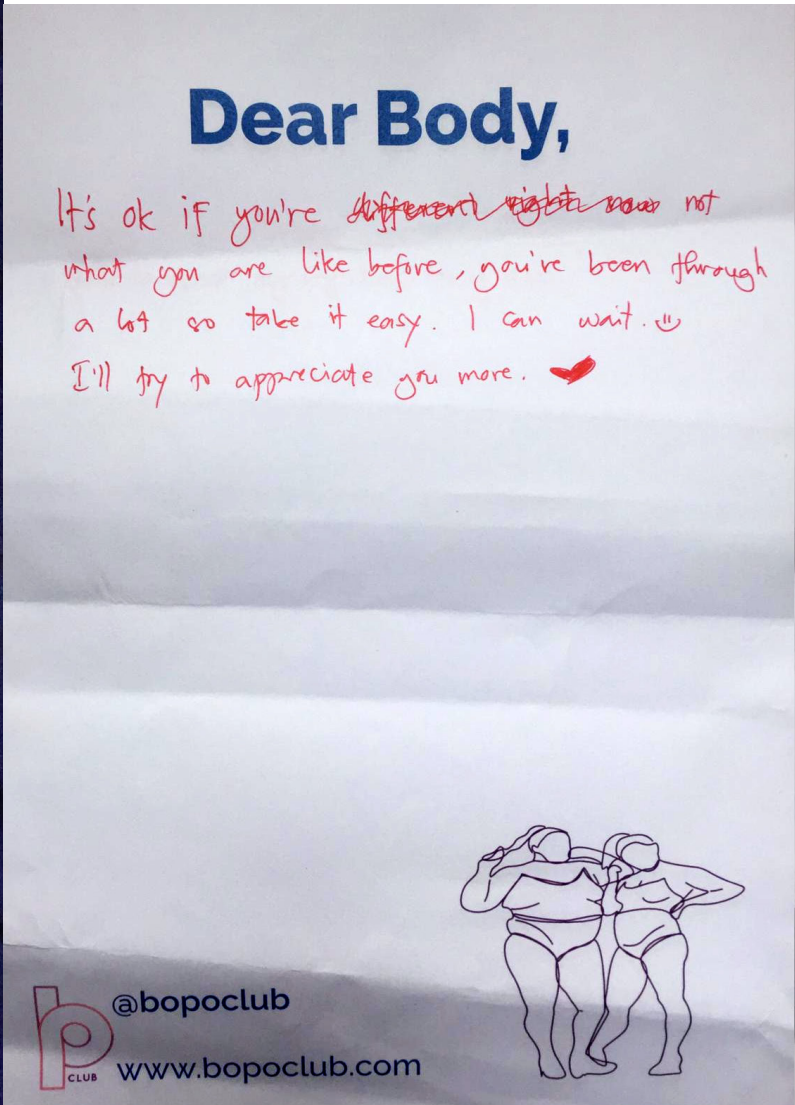 Dear Body,
It's ok if you're different right now not
what you are like before, you've been through
a lot so take it easy. I can wait.
I'll try to appreciate you more.
bp
CLUB
@bopoclub
www.bopoclub.com